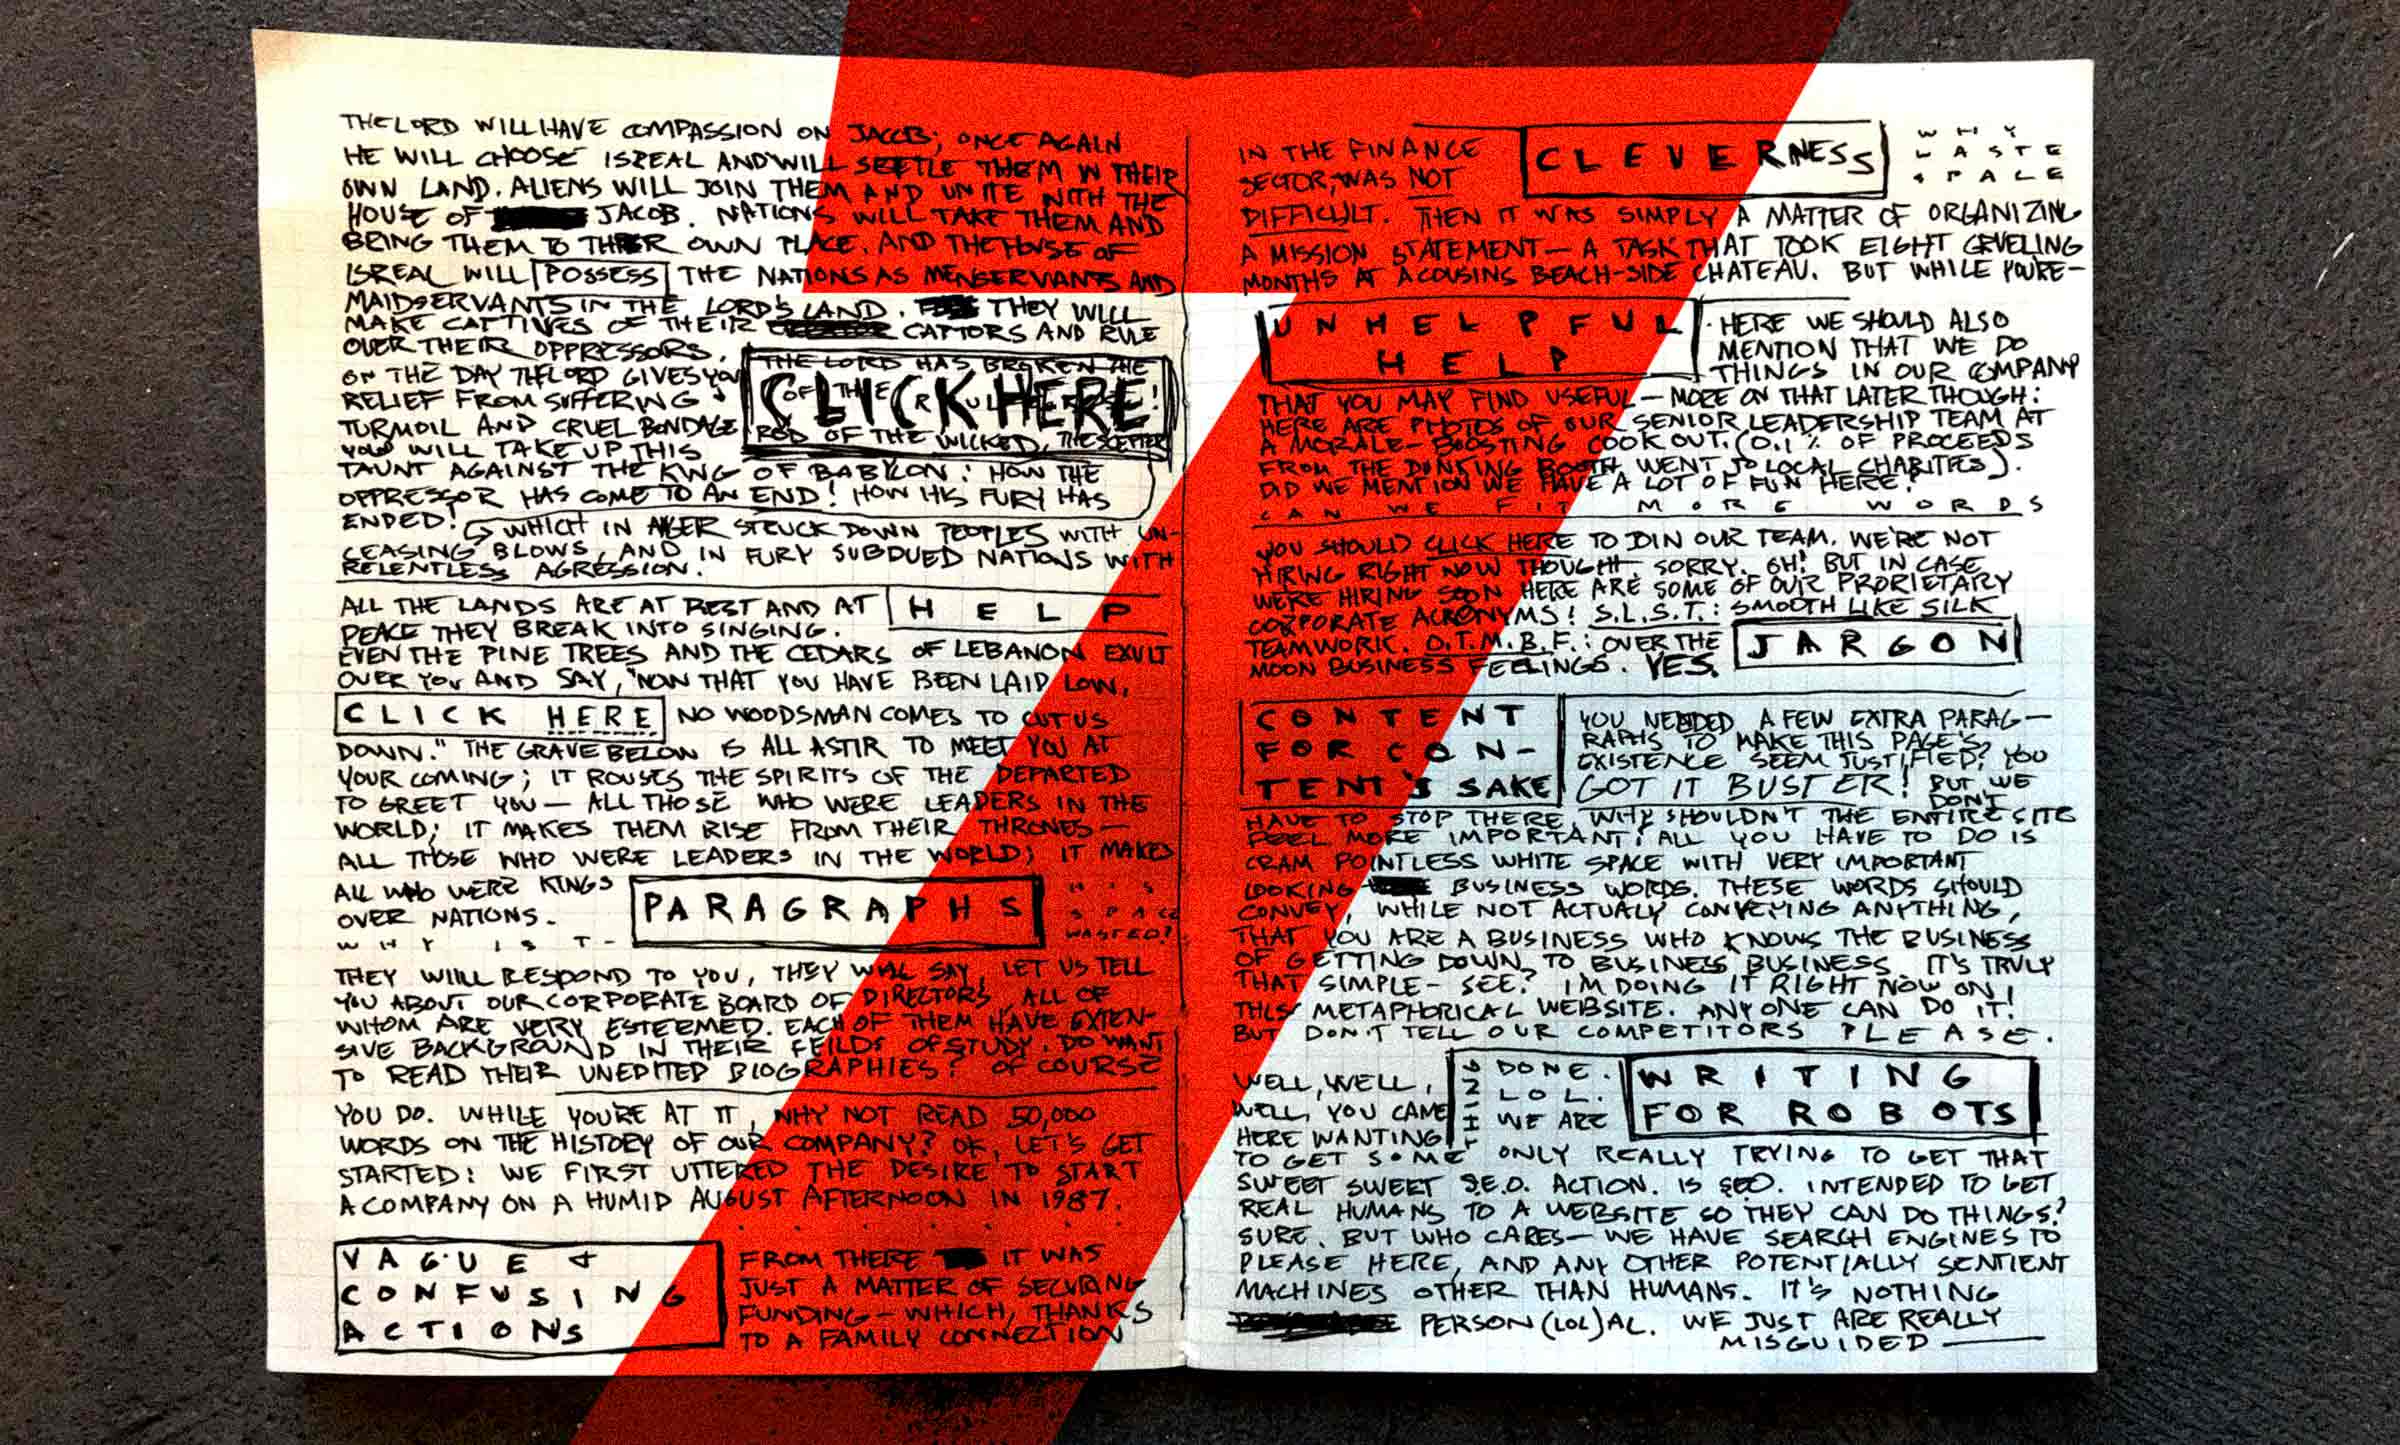 THE LORD WILL HAVE COMPASSION ON JACOB; ONCE AGAIN
HE WILL CHOOSE ISREAL AND WILL SEETLE THEM IN THEIR
OWN LAND. ALIENS WILL JOIN THEM AND UNITE WITH THE
HOUSE OF JACOB. NATIONS WILL TAKE THEM AND
BRING THEM TO THEIR OWN PLACE. AND THE HOUSE OF
ISREAL WILL POSSESS THE NATIONS AS MENSERVANTS AND
MAIDSERVANTS IN THE LORD'S LAND. THEY WILL
MAKE CAPTIVES OF THEIR CAPTORS AND RULE
OVER THEIR OPPRESSORS.
ON THE DAY THE LORD GIVES YOU
RELIEF FROM SUFFERING &
TURMOIL AND CRUEL BONDAGE
YOU WILL TAKE UP THIS
THE LORD HAS BROKEN THE
CLICK HERE!
ROD OF THE WICKED, THE SCEPTER
TAUNT AGAINST THE KING OF BABYLON: HOW THE
OPPRESSOR HAS COME TO AN END! HOW HIS FURY HAS
ENDED! WHICH IN ANGER STRUCK DOWN PEOPLES WITH UN-
CEASING BLOWS, AND IN FURY SUBDUED NATIONS WITH
RELENTLESS AGRESSION.
ALL THE LANDS ARE AT REST AND AT HELP
PEACE THEY BREAK INTO SINGING.
EVEN THE PINE TREES AND THE CEDARS OF LEBANON EXULT
OVER YOU AND SAY, "NOW THAT YOU HAVE BEEN LAID LOW,
CLICK HERE NO WOODSMAN COMES TO CUT US
DOWN." THE GRAVE BELOW IS ALL ASTIR TO MEET YOU AT
YOUR COMING; IT ROUSES THE SPIRITS OF THE DEPARTED
TO GREET YOU — ALL THOSE WHO WERE LEADERS IN THE
WORLD; IT MAKES THEM RISE FROM THEIR THRONES —
ALL THOSE WHO WERE LEADERS IN THE WORLD; IT MAKES
ALL WHO WERE KINGS
OVER NATIONS.
WHY IS T-
PARAGRAPHS
HIS
SPACE
WASTED?
THEY WILL RESPOND TO YOU, THEY WILL SAY, LET US TELL
YOU ABOUT OUR CORPORATE BOARD OF DIRECTORS, ALL OF
WHOM ARE VERY ESTEEMED. EACH OF THEM HAVE EXTEN-
SIVE BACKGROUND IN THEIR FEILDS OF STUDY. DO WANT
TO READ THEIR UNEDITED BIOGRAPHIES? OF COURSE
YOU DO. WHILE YOU'RE AT IT, WHY NOT READ 50,000
WORDS ON THE HISTORY OF OUR COMPANY? OK, LET'S GET
STARTED: WE FIRST UTTERED THE DESIRE TO START
A COMPANY ON A HUMID AUGUST AFTERNOON IN 1987.
VAGUE &
CONFUSING
ACTIONS
FROM THERE IT WAS
JUST A MATTER OF SECURING
FUNDING — WHICH, THANKS
TO A FAMILY CONNECTION
IN THE FINANCE
SECTOR, WAS NOT
CLEVERNESS
WHY
WASTE
SPACE
DIFFICULT. THEN IT WAS SIMPLY A MATTER OF ORGANIZING
A MISSION STATEMENT — A TASK THAT TOOK EIGHT GRUELING
MONTHS AT A COUSINS BEACH-SIDE CHATEAU. BUT WHILE YOU'RE —
UNHELPFUL
HELP
HERE WE SHOULD ALSO
MENTION THAT WE DO
THINGS IN OUR COMPANY
THAT YOU MAY FIND USEFUL — MORE ON THAT LATER THOUGH:
HERE ARE PHOTOS OF OUR SENIOR LEADERSHIP TEAM AT
A MORALE-BOOSTING COOK OUT. (0.1% OF PROCEEDS
FROM THE DUNKING BOOTH WENT TO LOCAL CHARITIES).
DID WE MENTION WE HAVE A LOT OF FUN HERE?
CAN WE FIT MORE WORDS
YOU SHOULD CLICK HERE TO JOIN OUR TEAM. WE'RE NOT
HIRING RIGHT NOW THOUGHT. SORRY. OH! BUT IN CASE
WERE HIRING SOON HERE ARE SOME OF OUR PRORIETARY
CORPORATE ACRONYMS! S.L.S.T.: SMOOTH LIKE SILK
TEAMWORK. O.T.M.B.F.: OVER THE
MOON BUSINESS FEELINGS. YES.
JARGON
CONTENT
FOR CON-
TENT'S SAKE
YOU NEEDED A FEW EXTRA PARAG-
RAPHS TO MAKE THIS PAGE'S
EXISTENCE SEEM JUSTIFIED? YOU
GOT IT BUSTER! BUT WE
DON'T
HAVE TO STOP THERE. WHY SHOULDN'T THE ENTIRE SITE
FEEL MORE IMPORTANT? ALL YOU HAVE TO DO IS
CRAM POINTLESS WHITE SPACE WITH VERY IMPORTANT
LOOKING BUSINESS WORDS. THESE WORDS SHOULD
CONVEY, WHILE NOT ACTUALY CONVEYING ANYTHING,
THAT YOU ARE A BUSINESS WHO KNOWS THE BUSINESS
OF GETTING DOWN TO BUSINESS BUSINESS. IT'S TRULY
THAT SIMPLE — SEE? I'M DOING IT RIGHT NOW ON
THIS METAPHORICAL WEBSITE. ANYONE CAN DO IT!
BUT DON'T TELL OUR COMPETITORS PLEASE.
WELL, WELL,
WELL, YOU CAME
HERE WANTING
DONE.
LOL.
WE ARE
WRITING
FOR ROBOTS
TO GET SOME ONLY REALLY TRYING TO GET THAT
SWEET SWEET S.E.O. ACTION. IS SEO. INTENDED TO GET
REAL HUMANS TO A WEBSITE SO THEY CAN DO THINGS?
SURE. BUT WHO CARES — WE HAVE SEARCH ENGINES TO
PLEASE HERE, AND ANY OTHER POTENTIALLY SENTIENT
MACHINES OTHER THAN HUMANS. IT'S NOTHING
PERSON(LOL)AL. WE JUST ARE REALLY
MISGUIDED —